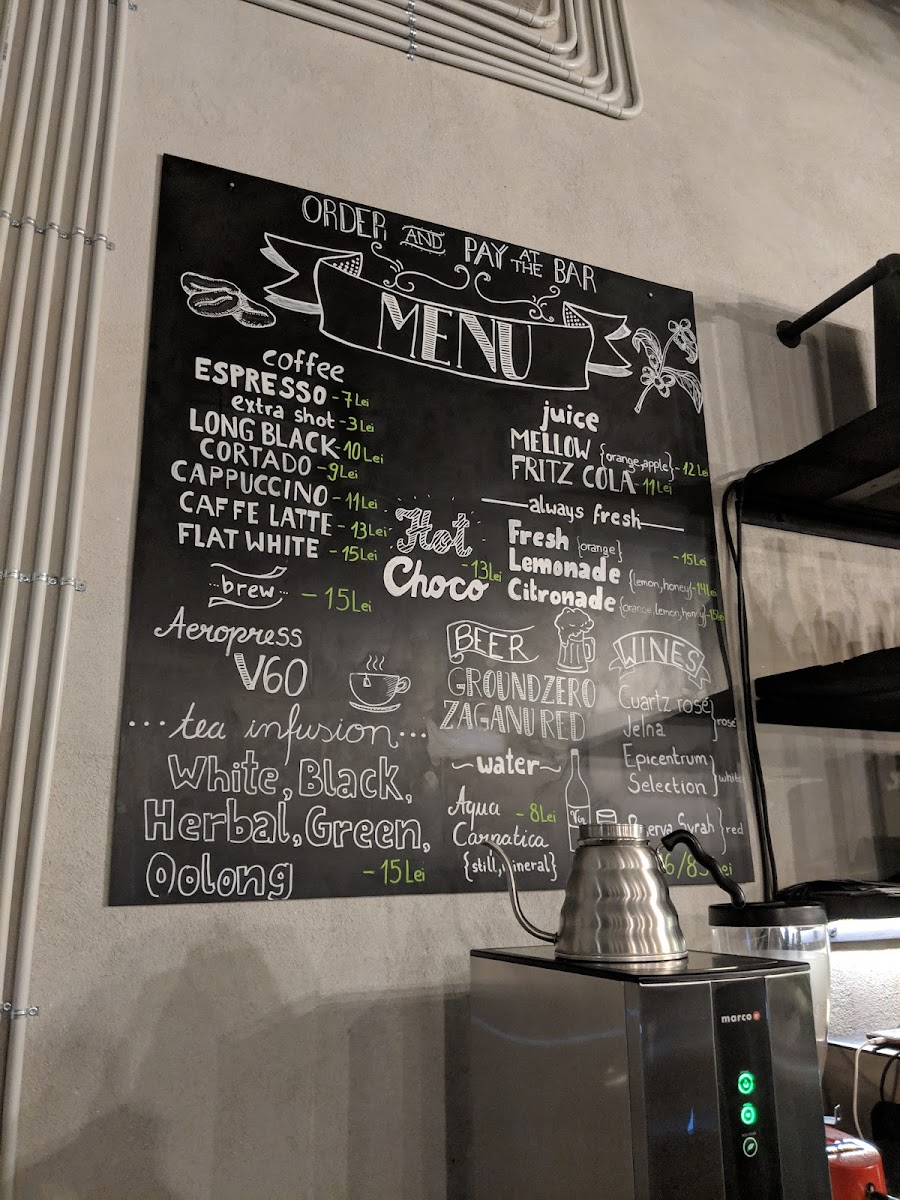 ORDER AND PAY AT THE BAR
MENU
coffee
ESPRESSO - 7 Lei
extra shot - 3 Lei
LONG BLACK - 10 Lei
CORTADO - 9 Lei
CAPPUCCINO - 11 Lei
CAFFE LATTE - 13 Lei
FLAT WHITE - 15 Lei
brew - 15 Lei
Aeropress
V60
Hot
Choco - 13 Lei
juice
MELLOW {orange, apple} - 12 Lei
FRITZ COLA - 11 Lei
always fresh
Fresh {orange} - 15 Lei
Lemonade {lemon, honey} - 14 Lei
Citronade {orange, lemon, honey} - 15 Lei
...tea infusion...
White, Black,
Herbal, Green,
Oolong - 15 Lei
BEER
GROUNDZERO
ZAGANU RED
~water~
Aqua - 8 Lei
Carpatica
{still, mineral}
WINES
Cuartz rosé
Jelna } rosé
Epicentrum
Selection } white
Syrah } red
marco